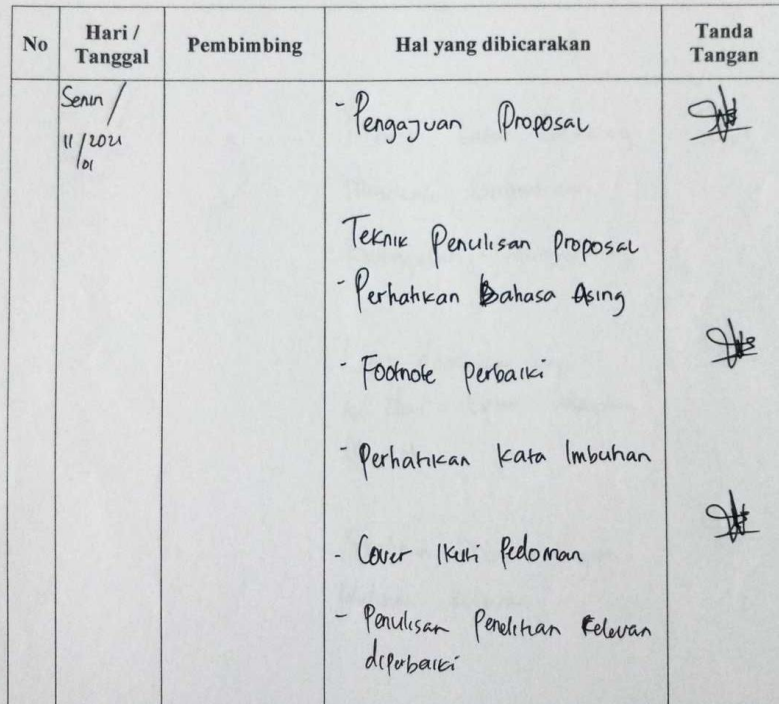 No
Hari /
Tanggal
Pembimbing
Hal yang dibicarakan
Tanda
Tangan
Senin /
11/2021
/01
- Pengajuan Proposal
Teknik Penulisan Proposal
- Perhatikan Bahasa Asing
- Footnote perbaiki
- Perhatikan kata Imbuhan
- Cover Ikuti Pedoman
- Penulisan Penelitian Relevan
diperbaiki